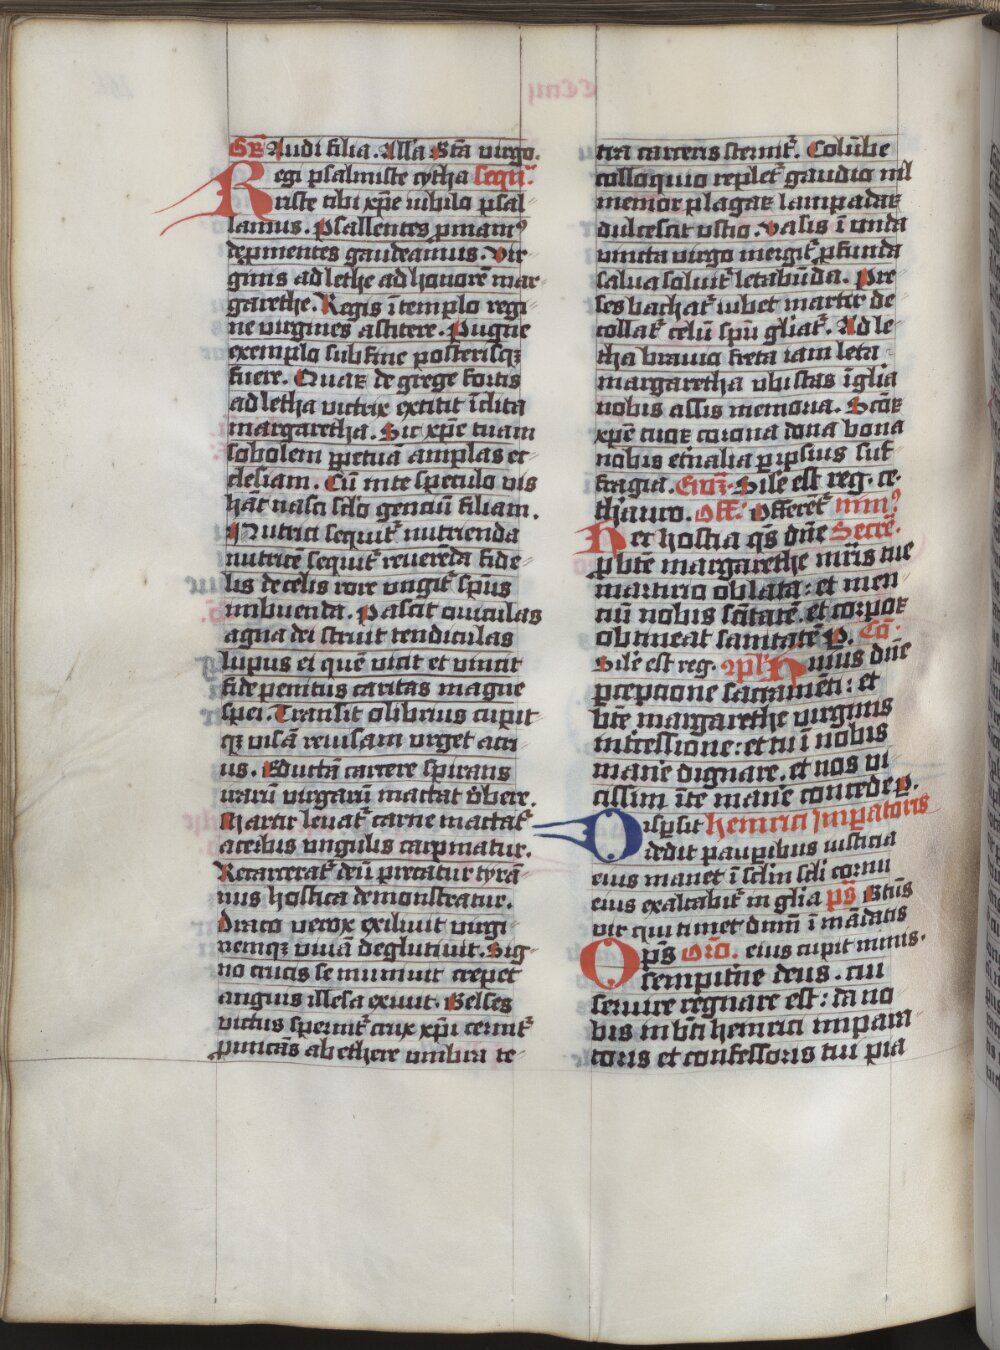 Gr̄ Audi filia. Alla Sc̄a uirgo.
Regi psalmiste cytha seqū.
iuste tibi xp̄e iubilo psal
lamus. Psallentes p̄miam9
dep̄mentes gaudeamus. Vir
ginis adlethe ad honorē mar
garethe. Regis ī templo regi
ne uirgines astitere. Pugne
exemplo sub fine posterisqꝫ
fuere. Quaꝝ de grege fortis
adletha uictrix extitit īclita
margaretha. Sic xp̄e tuam
sobolem ꝑpetuā amplas ec
clesiam. Cū mite speculo uis
hāc nasci sc̄lo genciū filiam.
Nutrici sequit᷑ nutrienda
nutricē sequit᷑ reuerēda fide
lis de celis rore ungit᷑ sp̄us
imbuenda. Pascit ouiculas
agna dei struit tendiculas
lupus ei quē uicit et uincit
fide penitus caritas magne
spei. Transit olibrius cupit
qꝫ uisā reuisam urget acri
us. Eductā carcere spirans
uiraꝝ uirgarū mactat v̇bere.
Martir leuat᷑ carne mactat᷑
acribus ungulis carpinatur.
Recarcerat᷑ deū precatur tyrā
nus hostica demonstratur.
Draco uerox exiliuit uirgi
nemqꝫ uiuā deglutiuit. Sig
no crucis se muniuit crepet
anguis illesa exiuit. Belses
uictus spernit᷑ crux xp̄i cernit᷑
punicās ab ethere umbra te
tra carcens sternit᷑. Colūbe
colloquio replet᷑ gaudio nil
memor plagaꝝ lampadaꝝ
dulcescit ustio. Vasis ī unda
uincta uirgo mergit᷑ ꝓfunda
salua soluit᷑ letabūda. Pre
ses bachat᷑ iubet martir de
collat᷑ celū sp̄u gl̄iat᷑. Adle
tha brauio freta iam leta
margaretha ubi stas ī gl̄ia
nobis assis memoria. Sc̄oꝝ
xp̄e tuoꝝ corona dona bona
nobis et̄nalia ꝑ ip̄sius suf
fragia. Ew̄ꝫ. Sil̄e est reg. ce.
thauro. Off. Offeret᷑ min9
Hec hostia qs̄ dn̄e Secre̅.
ꝓ bt̄e margarethe mr̄is tue
martirio oblata: et men
ciū nobis sc̄itatē. et corpoꝝ
obtineat sanitatē P. Cō.
Sil̄e est reg. 9pl. Huius dn̄e
ꝑceptione sacramēti: et
bt̄e margarethe uirginis
int̄cessione: et tu ī nobis
mane dignare. et nos ui
cissim ī te mane concede p.
Disꝑsit henrici Imperatoris
dedit pauꝑibus iusticia
eius manet ī sc̄lm sc̄li cornu
eius exaltabit᷑ in gl̄ia ps̄ Bt̄us
uir qui timet dnm̄ ī mādatis
Op̄s Orō. eius cupit nimis.
sempit̄ne deus. cui
seruire regnare est: da no
bis in bt̄i heinrici impara
toris et confessoris tui pia